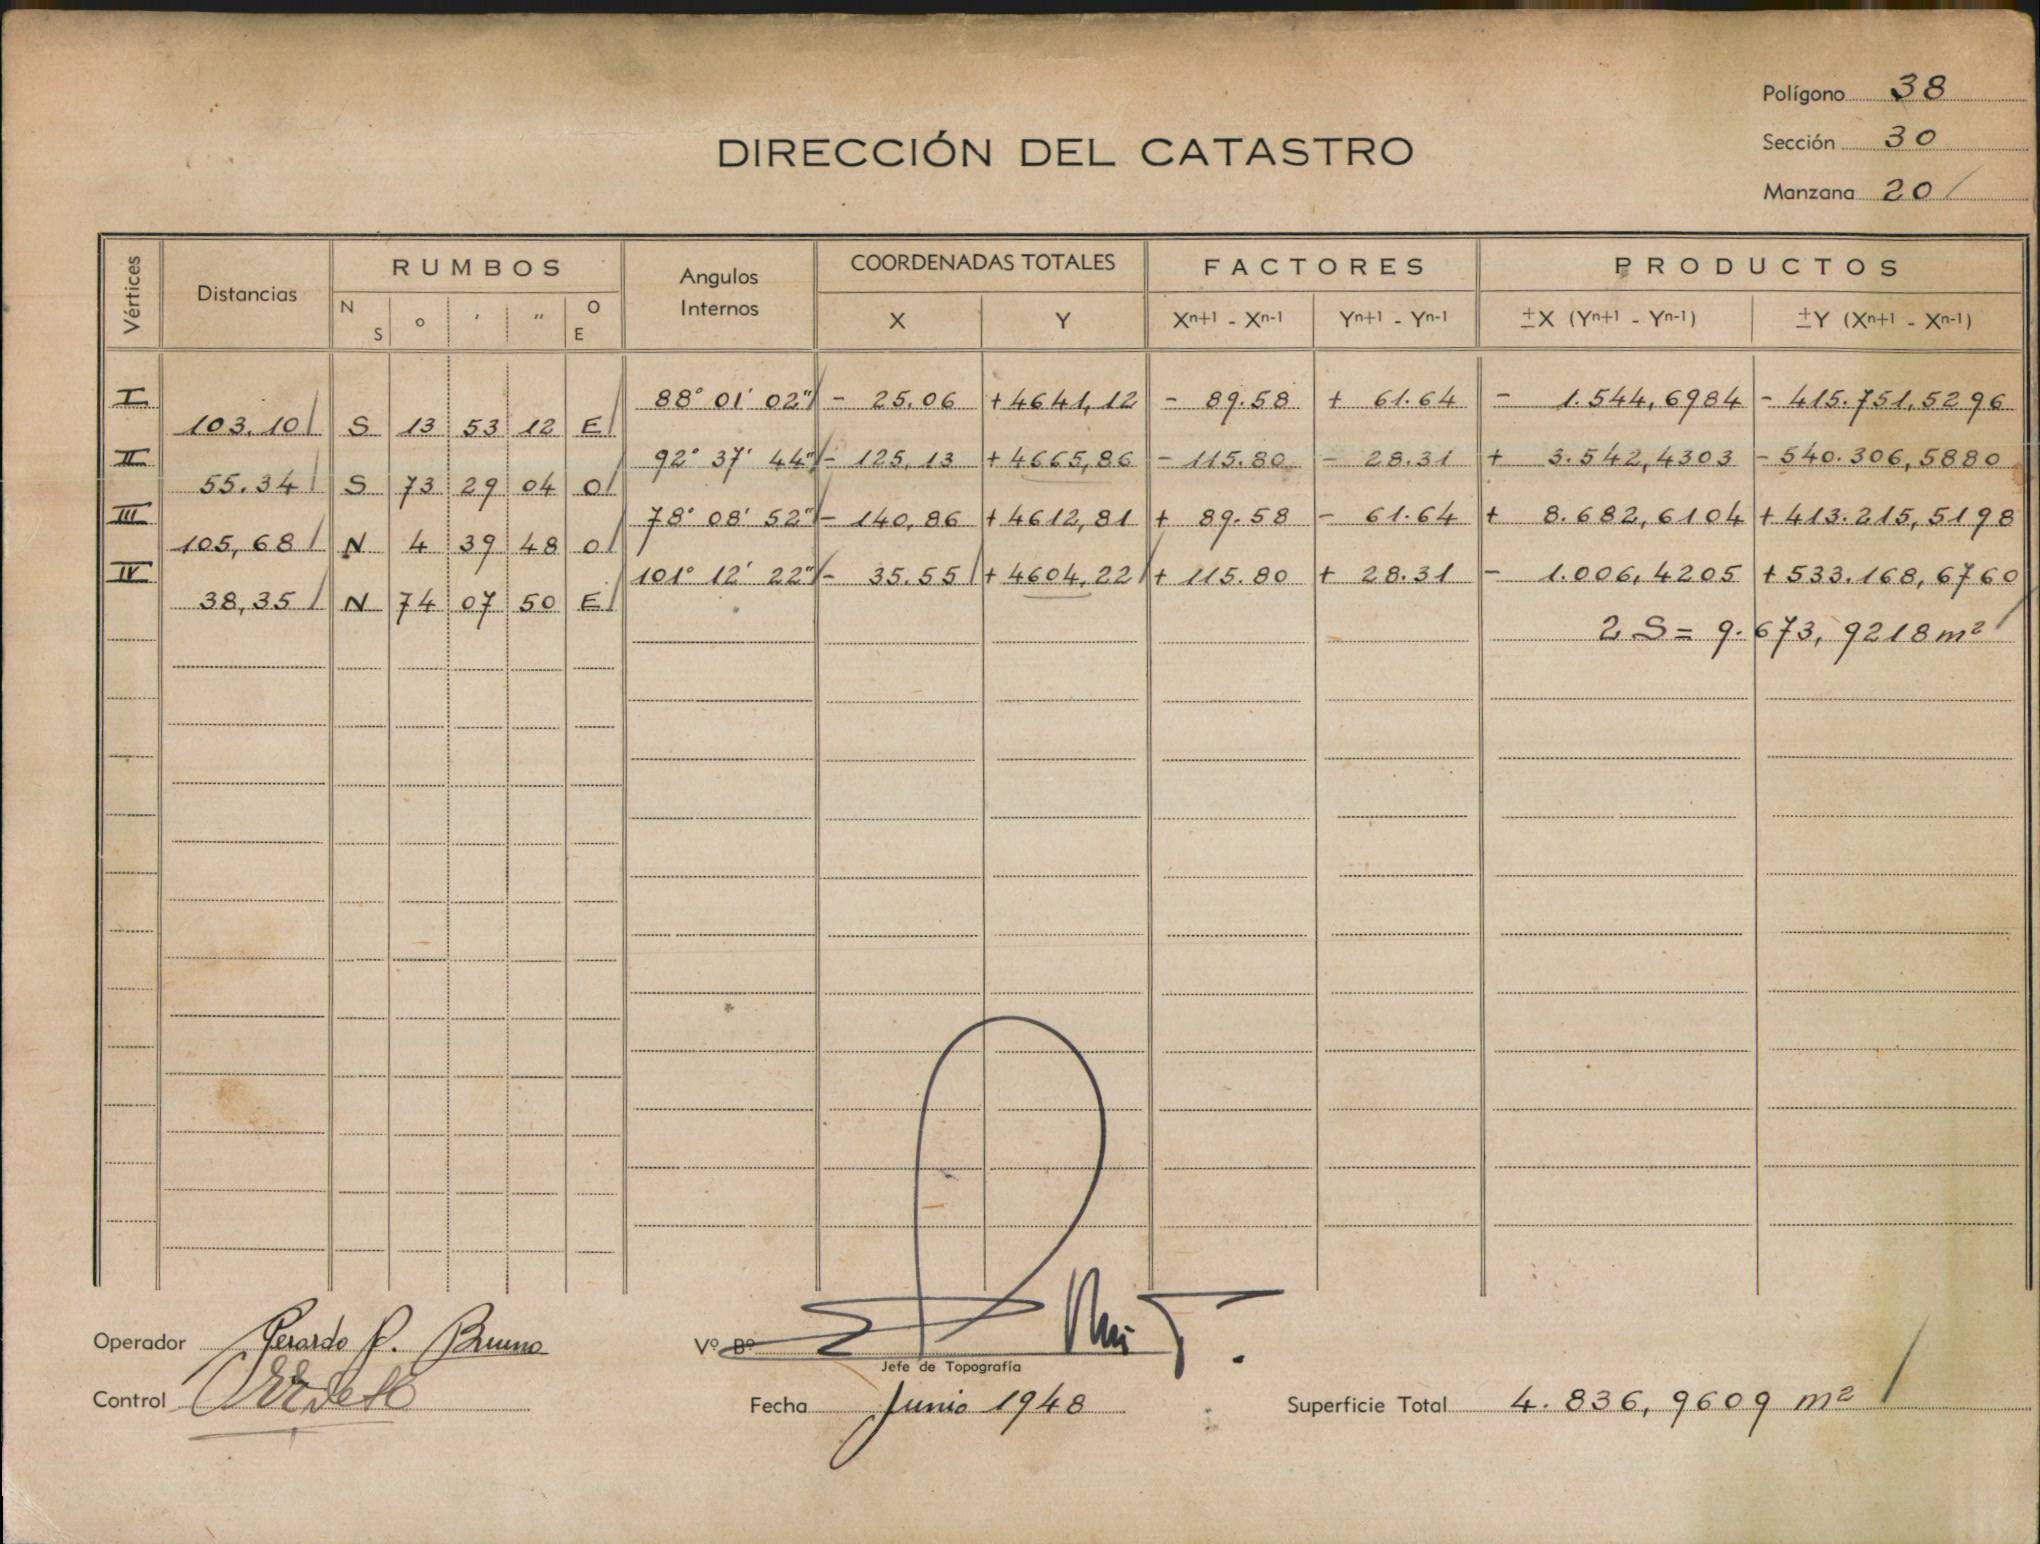 Polígono 38
DIRECCIÓN DEL CATASTRO
Sección 30
Manzana 20
Vértices Distancias RUMBOS Angulos Internos COORDENADAS TOTALES FACTORES PRODUCTOS
N S ° ' " O E X Y Xn+1 - Xn-1 Yn+1 - Yn-1 ±X (Yn+1 - Yn-1) ±Y (Xn+1 - Xn-1)
I 88° 01' 02" - 25,06 +4641,12 - 89.58 + 61.64 - 1.544,6984 - 415.751,5296
103,10 S 13 53 12 E
II 92° 37' 44" - 125,13 +4665,86 - 115.80 - 28.31 + 3.542,4303 - 540.306,5880
55.34 S 73 29 04 O
III 78° 08' 52" - 140,86 +4612,81 + 89.58 - 61.64 + 8.682,6104 +413.215,5198
105,68 N 4 39 48 O
IV 101° 12' 22" - 35.55 +4604,22 + 115.80 + 28.31 - 1.006,4205 +533.168,6760
38,35 N 74 07 50 E
2 S = 9.673,9218 m²
Operador Gerardo P. Bruno
Vº Bº
Jefe de Topografía
Control
Fecha Junio 1948
Superficie Total 4.836,9609 m²